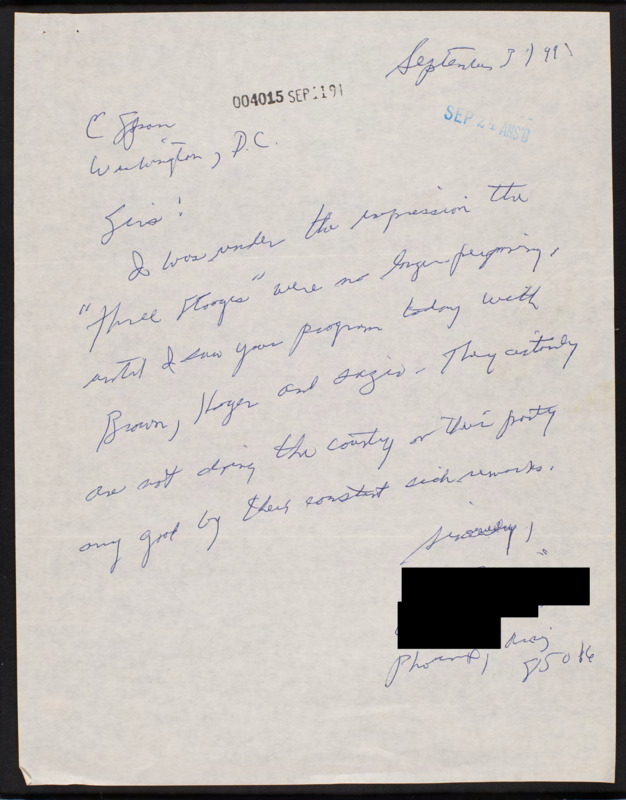 September 3, 1991
004015 SEP 11 91
SEP 24 ANS'D
C Span
Washington, D.C.
Sirs!
I was under the impression the
"Three Stooges" were no longer performing,
until I saw your program today with
Brown, and . They certainly
are not doing the country or their party
any good by their constant sick remarks.
Sincerely,
Phoenix, Ariz
85016